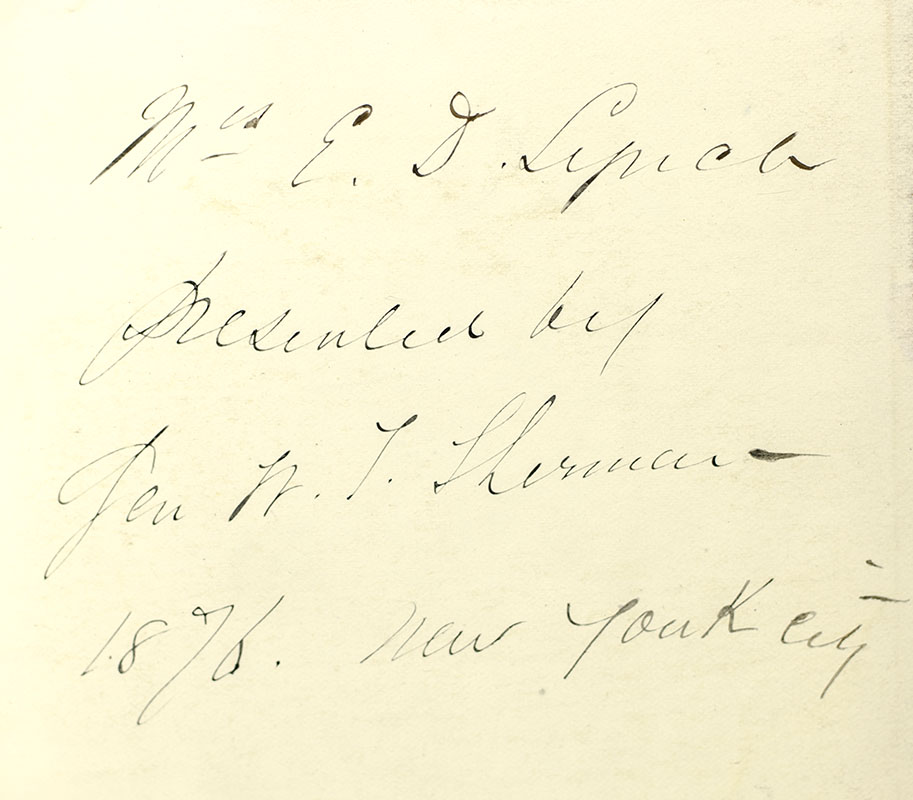 Mrs E. D. Lynch
presented by
Gen W. T. Sherman
1876. New York City